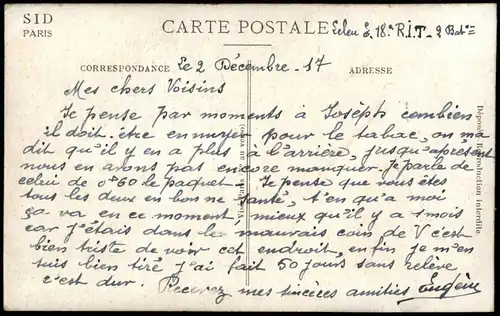 SID
PARIS
CARTE POSTALE
Leleu E. 18e R.I.T - 2 Batn
CORRESPONDANCE
Le 2 Décembre - 17
ADRESSE
Mes chers Voisins
Je pense par moments à Joséph combien
il doit être ennuyer pour le tabac, on m'a
dit qu'il y en a plus à l'arrière, jusqu'aprésent
nous en avons pas encore manquer. Je parle de
celui de 0f60 le paquet - Je pense que vous êtes
tous les deux en bonne santé, t'en qu'a moi
ça va en ce moment, mieux qu'il y a 1 mois
car j'étais dans le mauvais coin de V c'est
bien triste de voir cet endroit, enfin je m'en
suis bien tiré j'ai fait 50 jours sans relève
c'est dur. Recevez mes sincères amitiés Eugène
Reproduction interdite